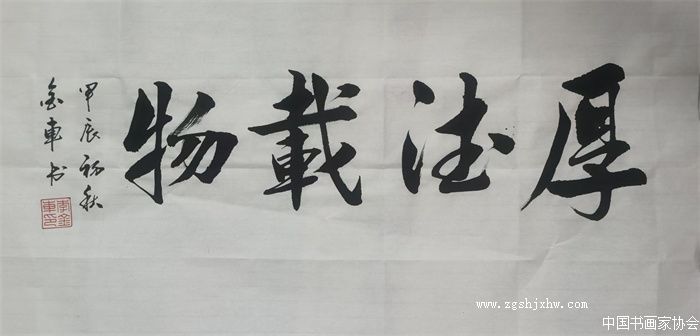 厚德載物
甲辰初秋
金車书
李金
車印
www.zgshjxhw.com
中国书画家协会